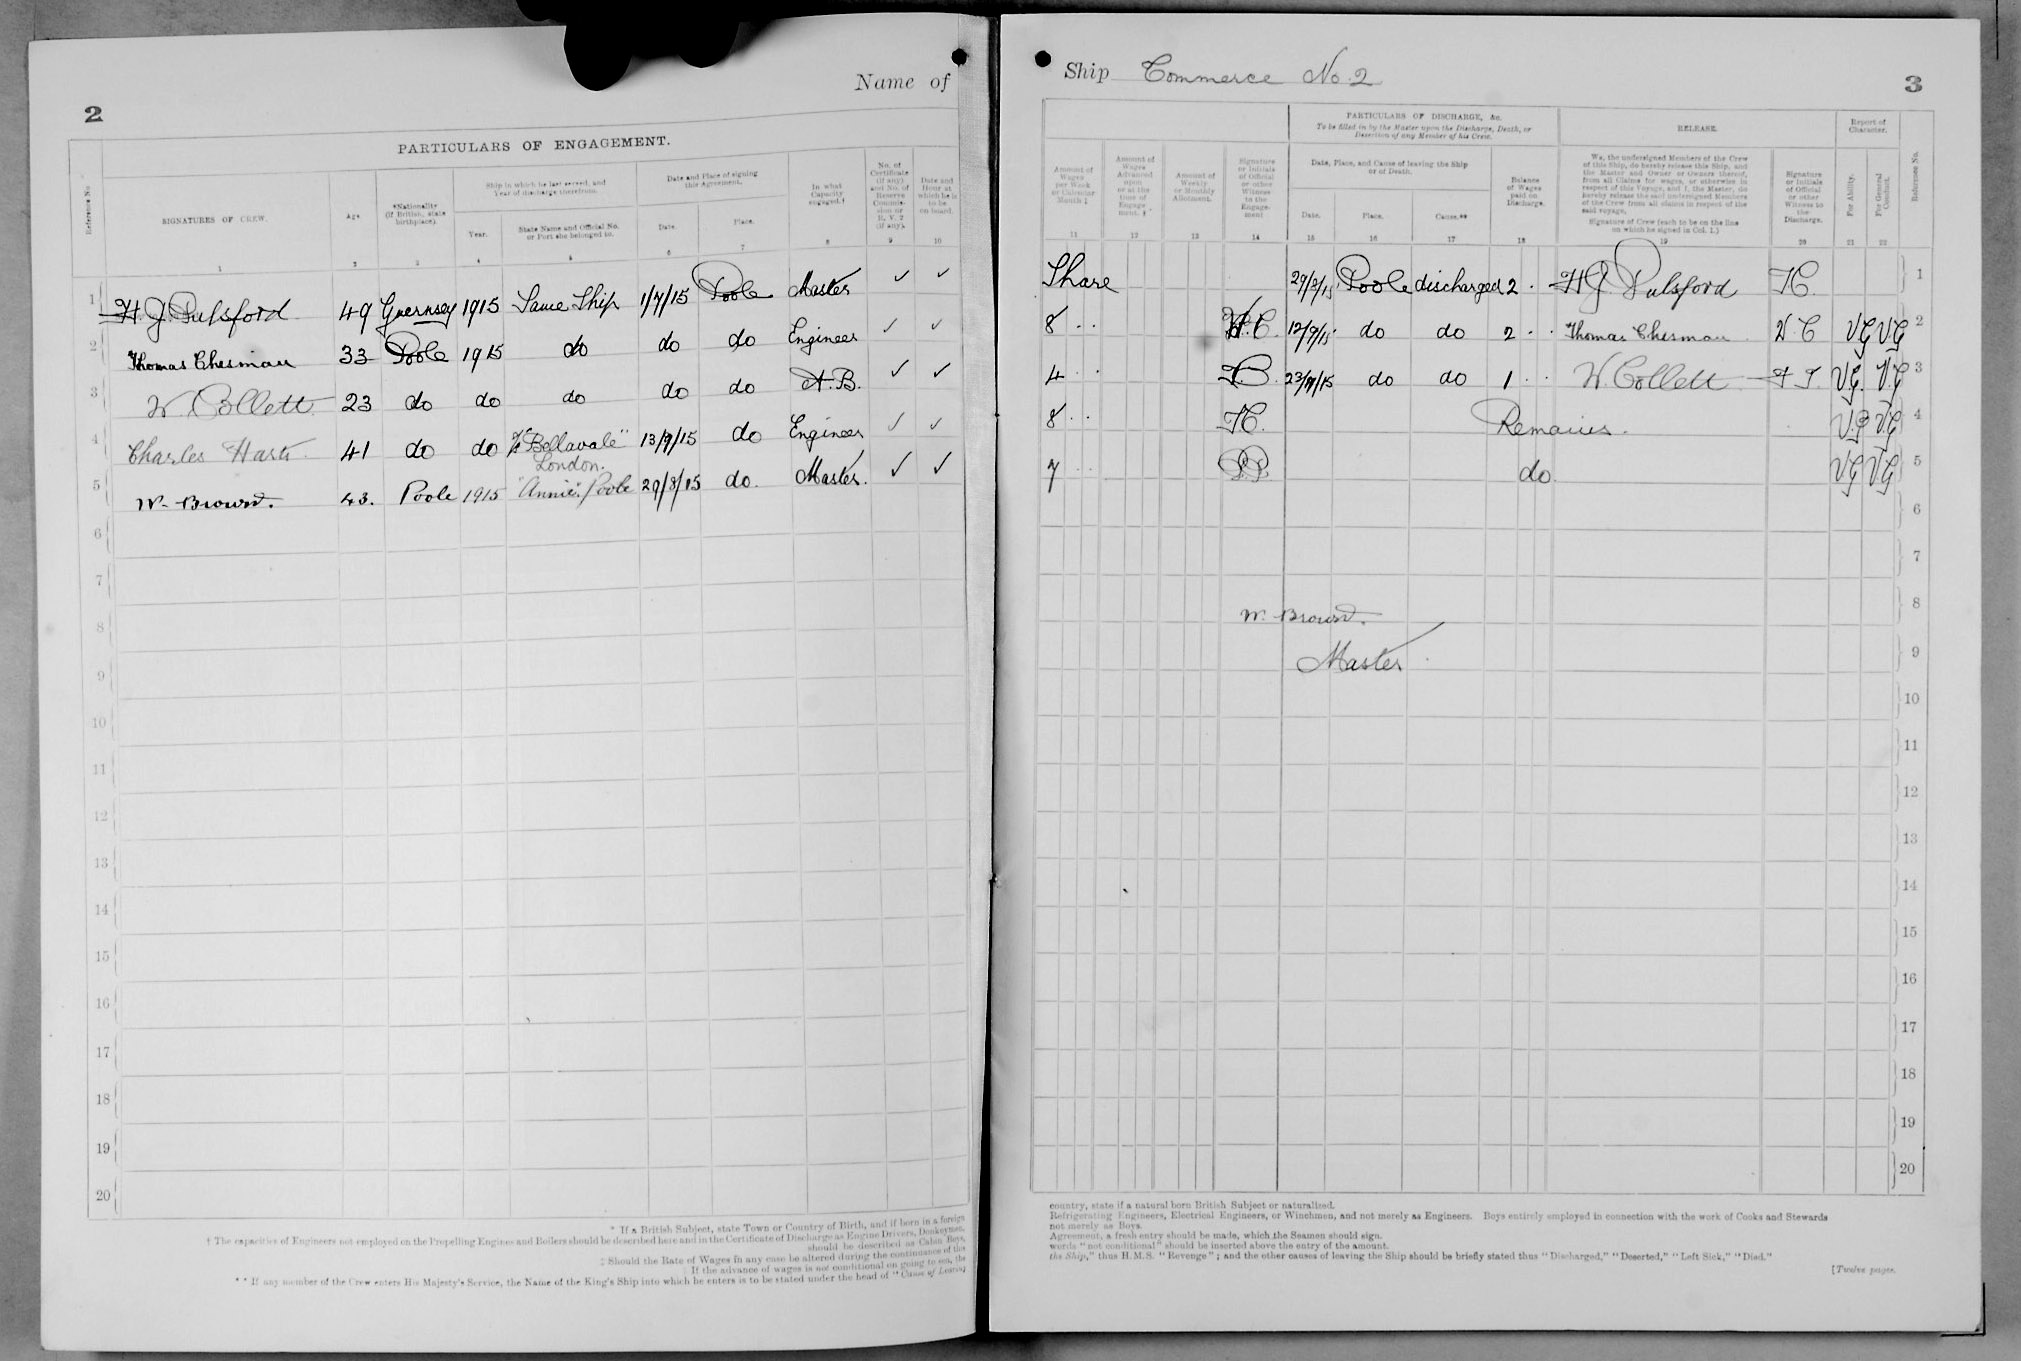 2
Name of
PARTICULARS OF ENGAGEMENT.
Reference No.
SIGNATURES OF CREW.
Age.
*Nationality (If British, state birthplace).
Ship in which he last served, and Year of discharge therefrom.
Year.
State Name and Official No. or Port she belonged to.
Date and Place of signing this Agreement.
Date.
Place.
In what Capacity engaged.†
No. of Certificate (if any) and No. of Reserve Commission or R.V. 2 (if any).
Date and Hour at which he is to be on board.
1 2 3 4 5 6 7 8 9 10
1 H. J. Pulsford 49 Guernsey 1915 Same Ship 1/7/15 Poole Master ✓ ✓
2 Thomas Chesman 33 Poole 1915 do do do Engineer ✓ ✓
3 W. Collett 23 do do do do do A.B. ✓ ✓
4 Charles Hart 41 do do "Bellavale" London. 13/9/15 do Engineer ✓ ✓
5 W. Brown. 43. Poole 1915 "Annie". Poole 29/8/15 do. Master. ✓ ✓
6
7
8
9
10
11
12
13
14
15
16
17
18
19
20
* If a British Subject, state Town or Country of Birth, and if born in a foreign
† The capacities of Engineers not employed on the Propelling Engines and Boilers should be described here and in the Certificate of Discharge as Engine Drivers, Donkeymen,
should be described as Cabin Boys,
‡ Should the Rate of Wages in any case be altered during the continuance of this
If the advance of wages is not conditional on going to sea, the
** If any member of the Crew enters His Majesty's Service, the Name of the King's Ship into which he enters is to be stated under the head of "Cause of Leaving
Ship Commerce No. 2
3
PARTICULARS OF DISCHARGE, &c.
To be filled in by the Master upon the Discharge, Death, or Desertion of any Member of his Crew.
RELEASE.
Report of Character.
Amount of Wages per Week or Calendar Month ‡
Amount of Wages Advanced upon or at the time of Engagement. ‡
Amount of Weekly or Monthly Allotment.
Signature or Initials of Official or other Witness to the Engagement
Date, Place, and Cause of leaving the Ship or of Death.
Date.
Place.
Cause.**
Balance of Wages paid on Discharge.
We, the undersigned Members of the Crew of this Ship, do hereby release this Ship, and the Master and Owner or Owners thereof, from all Claims for wages, or otherwise in respect of this Voyage, and I, the Master, do hereby release the said undersigned Members of the Crew from all claims in respect of the said voyage.
Signature of Crew (each to be on the line on which he signed in Col. 1.)
Signature or Initials of Official or other Witness to the Discharge.
For Ability.
For General Conduct.
Reference No.
11 12 13 14 15 16 17 18 19 20 21 22
Share Poole discharged 2 H J. Pulsford 1
8 12/9/15 do do 2 Thomas Chesman V.G V.G 2
4 do do 1 W. Collett V.G. V.G 3
8 Remains. V.G V.G 4
7 do. V.G V.G 5
6
7
W. Brown. 8
Master 9
10
11
12
13
14
15
16
17
18
19
20
country, state if a natural born British Subject or naturalized.
Refrigerating Engineers, Electrical Engineers, or Winchmen, and not merely as Engineers. Boys entirely employed in connection with the work of Cooks and Stewards
not merely as Boys.
Agreement, a fresh entry should be made, which the Seamen should sign.
words "not conditional" should be inserted above the entry of the amount.
the Ship," thus H.M.S. "Revenge"; and the other causes of leaving the Ship should be briefly stated thus "Discharged," "Deserted," "Left Sick," "Died."
[Twelve pages.